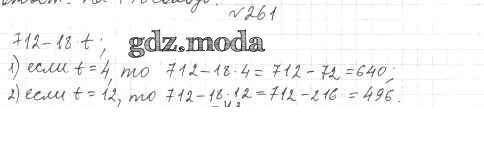 №261
712-18 t;
gdz.moda
1) если t=4, то 712-18·4=712-72=640;
2) если t=12, то 712-18·12=712-216=496.